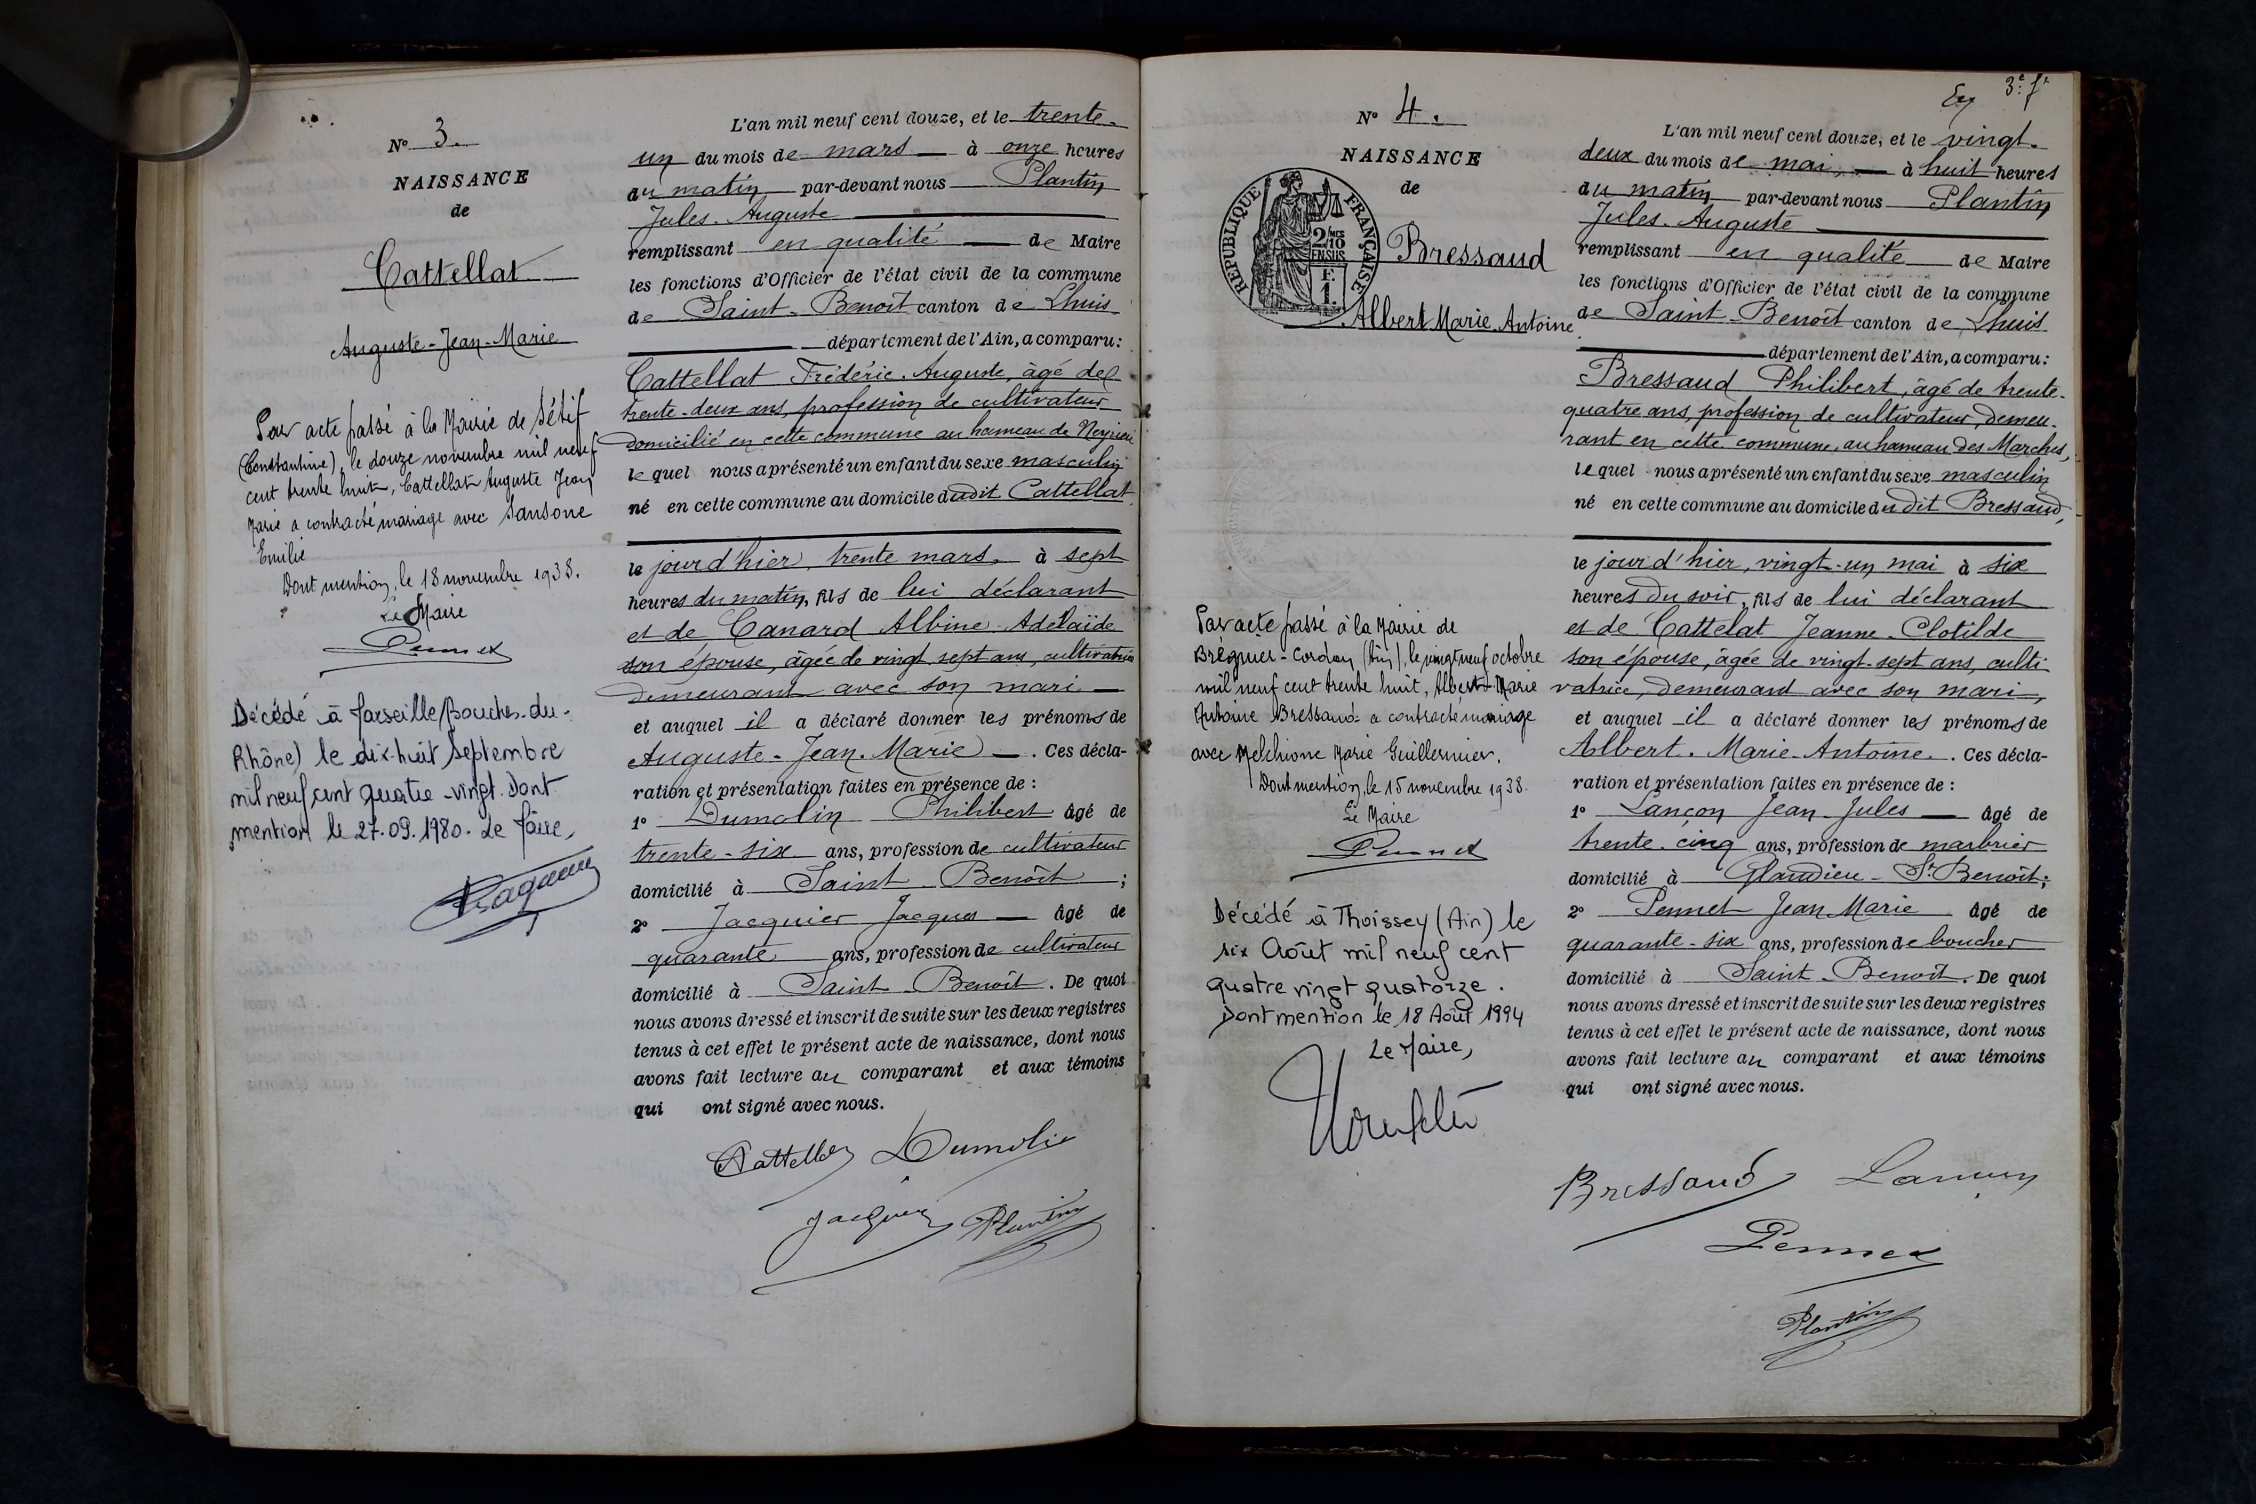 N° 3.
NAISSANCE
de
Cattellat
Auguste-Jean-Marie
Par acte passé à la Mairie de Sétif
(Constantine), le douze novembre mil neuf
cent trente huit, Cattellat Auguste Jean
Marie a contracté mariage avec Sansone
Emilie
Dont mention, le 18 novembre 1938.
Le Maire
Pennet
Décédé à Marseille (Bouches-du-
Rhône) le dix-huit Septembre
mil neuf cent quatre-vingt. Dont
mention le 27.09.1980. Le Maire,
L'an mil neuf cent douze, et le trente-
un du mois de mars à onze heures
du matin par-devant nous Plantin
Jules-Auguste
remplissant en qualité de Maire
les fonctions d'Officier de l'état civil de la commune
de Saint-Benoît canton de Lhuis
département de l'Ain, a comparu:
Cattellat Frédéric-Auguste, âgé de
trente-deux ans, profession de cultivateur
domicilié en cette commune au hameau de Neyrieu
lequel nous a présenté un enfant du sexe masculin
né en cette commune au domicile dudit Cattellat
le jour d'hier, trente mars, à sept
heures du matin, fils de lui déclarant
et de Canard Albine-Adélaïde
son épouse, âgée de vingt sept ans, cultivatrice
demeurant avec son mari
et auquel il a déclaré donner les prénoms de
Auguste-Jean-Marie. Ces décla-
ration et présentation faites en présence de :
1° Dumolin Philibert âgé de
trente-six ans, profession de cultivateur
domicilié à Saint-Benoît ;
2° Jacquier Jacques âgé de
quarante ans, profession de cultivateur
domicilié à Saint-Benoît. De quoi
nous avons dressé et inscrit de suite sur les deux registres
tenus à cet effet le présent acte de naissance, dont nous
avons fait lecture au comparant et aux témoins
qui ont signé avec nous.
Cattellat Dumolin
Jacquier Plantin
3e ft
N° 4.
NAISSANCE
de
RÉPUBLIQUE FRANÇAISE
2/10
EN SUS
F.
1.
Bressaud
Albert Marie-Antoine
Par acte passé à la Mairie de
Brégnier-Cordon (Ain), le vingt neuf octobre
mil neuf cent trente huit, Albert-Marie
Antoine Bressaud a contracté mariage
avec Melchione Marie Guillermier.
Dont mention, le 15 novembre 1938.
Le Maire
Pennet
Décédé à Thoissey (Ain) le
six Août mil neuf cent
quatre vingt quatorze.
Dont mention le 18 Août 1994
Le Maire,
L'an mil neuf cent douze, et le vingt-
deux du mois de mai, à huit heures
du matin par-devant nous Plantin
Jules-Auguste
remplissant en qualité de Maire
les fonctions d'Officier de l'état civil de la commune
de Saint-Benoît canton de Lhuis
département de l'Ain, a comparu:
Bressaud Philibert, âgé de trente-
quatre ans, profession de cultivateur, demeu-
rant en cette commune, au hameau des Marches,
lequel nous a présenté un enfant du sexe masculin
né en cette commune au domicile dudit Bressaud,
le jour d'hier, vingt-un mai à six
heures du soir, fils de lui déclarant
et de Cattelat Jeanne-Clotilde
son épouse, âgée de vingt-sept ans, culti-
vatrice, demeurant avec son mari,
et auquel il a déclaré donner les prénoms de
Albert-Marie-Antoine. Ces décla-
ration et présentation faites en présence de :
1° Lançon Jean-Jules âgé de
trente-cinq ans, profession de marbrier
domicilié à Glandieu-St Benoît;
2° Pennet Jean Marie âgé de
quarante-six ans, profession de boucher
domicilié à Saint-Benoît. De quoi
nous avons dressé et inscrit de suite sur les deux registres
tenus à cet effet le présent acte de naissance, dont nous
avons fait lecture au comparant et aux témoins
qui ont signé avec nous.
Bressaud Lançon
Pennet
Plantin